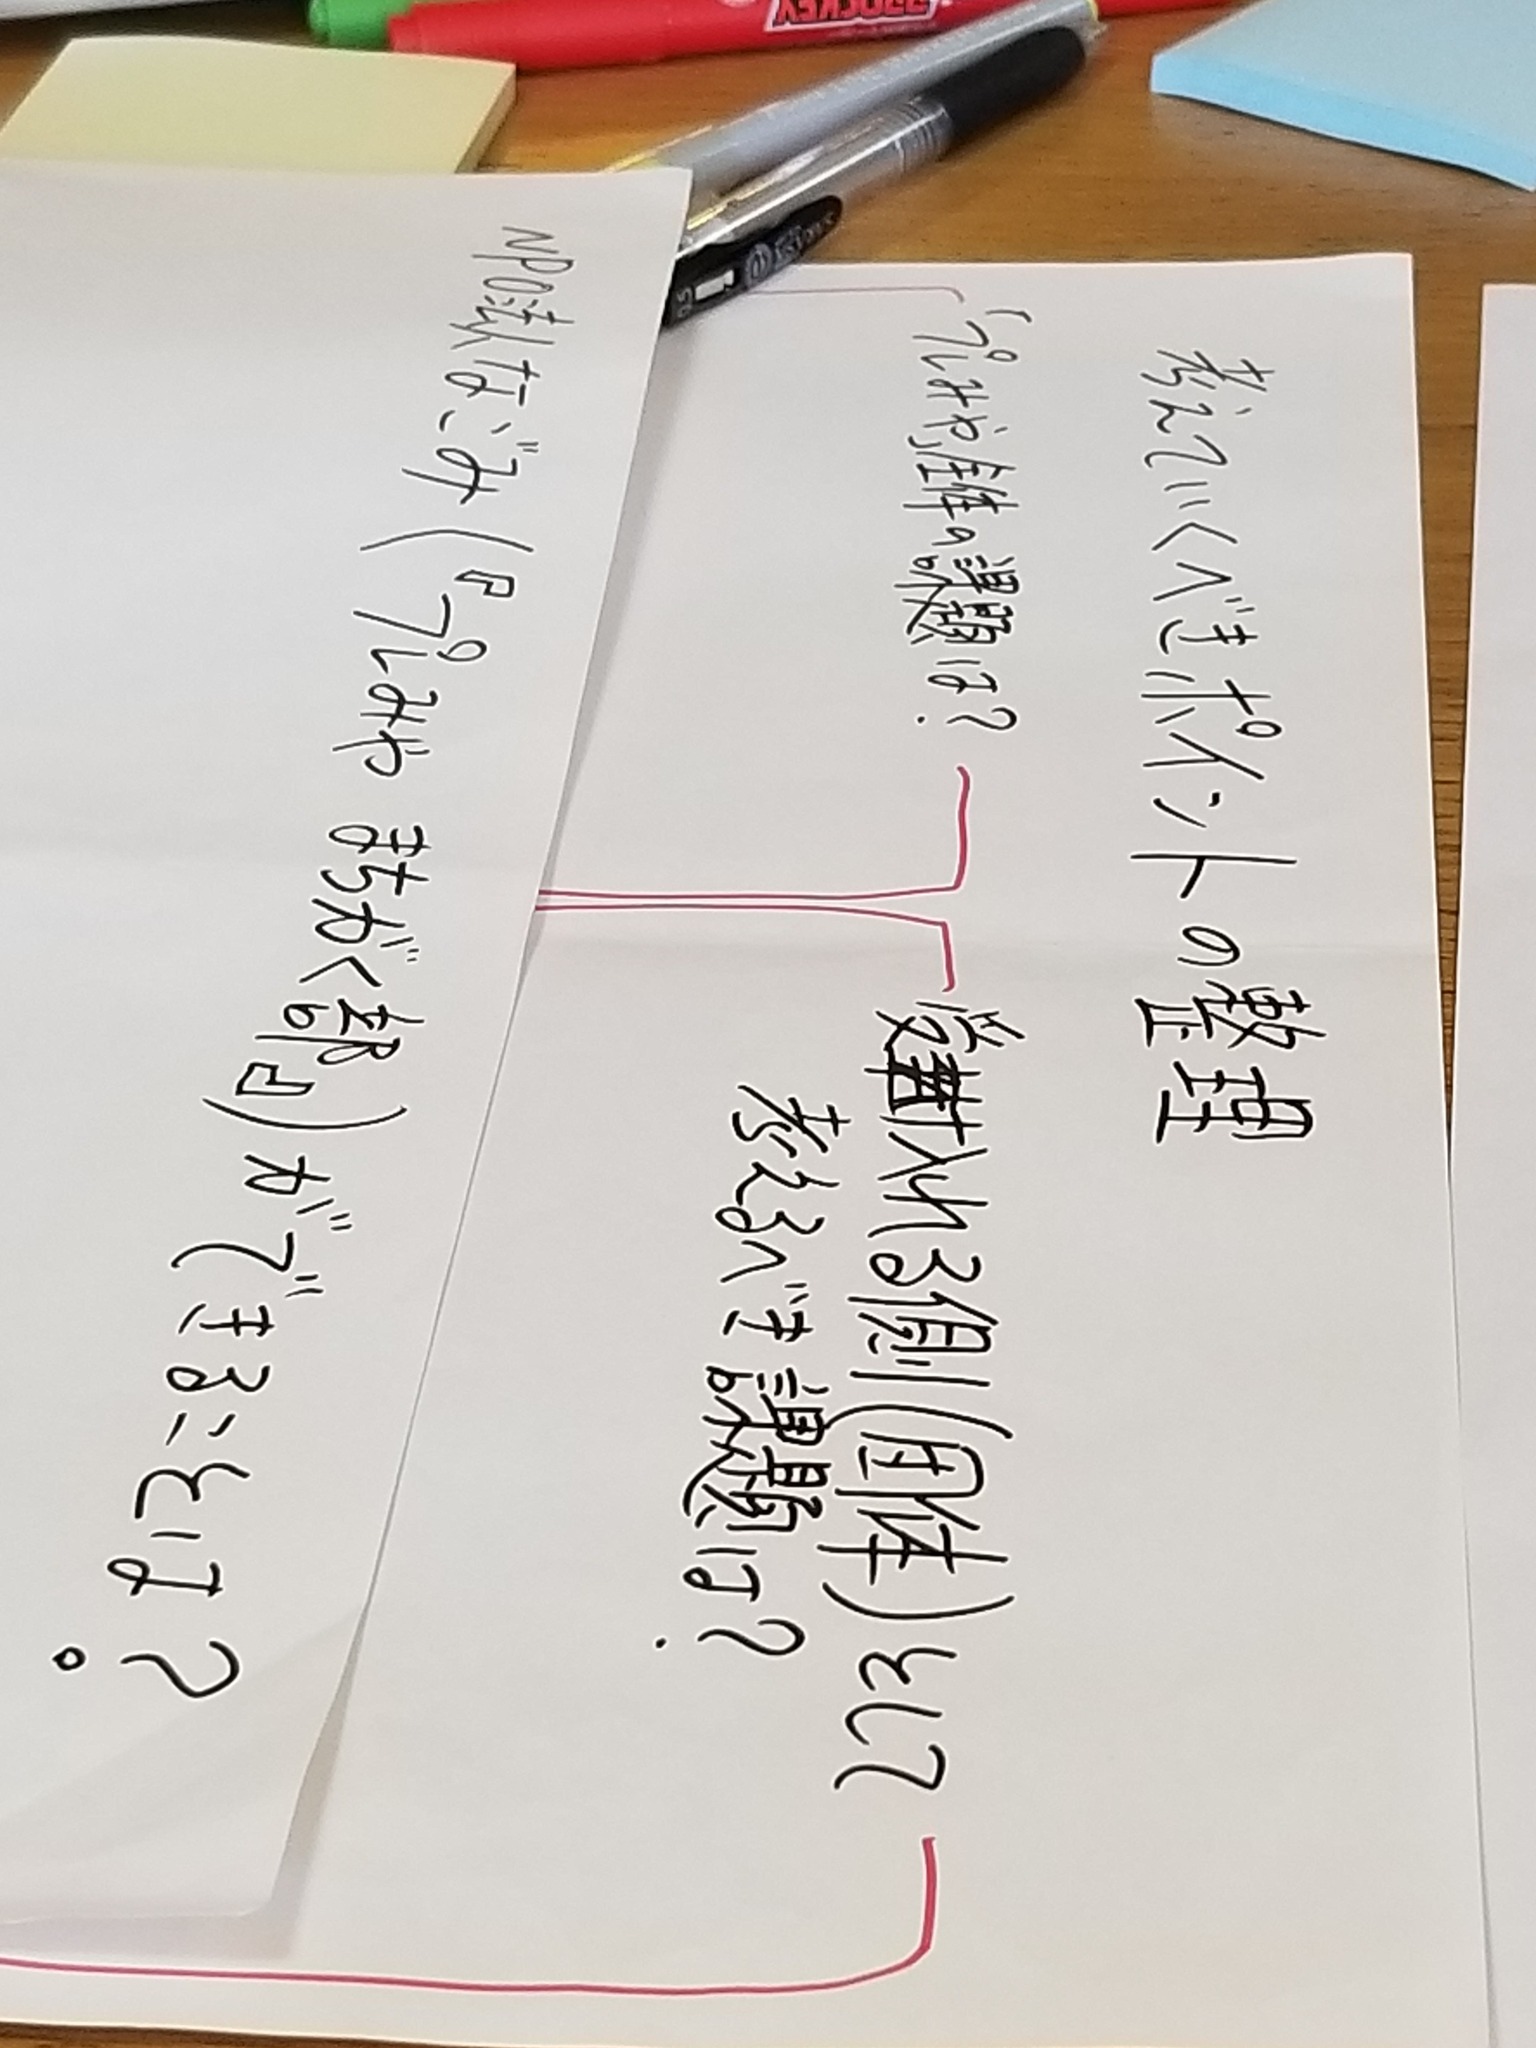 考えていくべきポイントの整理
「プレみや」全体の課題は?
受け入れる側(団体)として
考えるべき課題は?
NPO法人なごみ(『プレみや まちがく部』)ができることは?